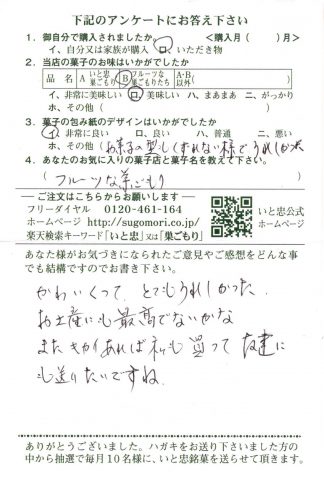 下記のアンケートにお答え下さい
1. 御自分で購入されましたか。 <購入月( )月>
イ、自分又は家族が購入 ロ、いただき物
2. 当店の菓子のお味はいかがでしたか。
品 名 A いと忠巣ごもり B フルーツな巣ごもりたち A・B以外( )
イ、非常に美味しい ロ、美味しい ハ、まあまあ ニ、がっかり
ホ、その他( )
3. 菓子の包み紙のデザインはいかがでしたか。
イ、非常に良い ロ、良い ハ、普通 ニ、悪い
ホ、その他(お菓子の型もくずれない様でうれしかった
4. あなたのお気に入りの菓子店と菓子名を教えて下さい。
(フルーツな巣ごもり )
ご注文はこちらからお願いします
フリーダイヤル 0120-461-164
ホームページ http://sugomori.co.jp/
楽天検索キーワード「いと忠」又は「巣ごもり」
いと忠公式
ホームページ
あなた様がお気づきになられたご意見やご感想をどんな事
でも結構ですのでお書き下さい。
かわいくって、とてもうれしかった。
お土産にも最高でないかな
また きかいあれば私も買って友達に
も送りたいですね。
ありがとうございました。ハガキをお送り下さいました方の
中から抽選で毎月10名様に、いと忠銘菓を送らせて頂きます。